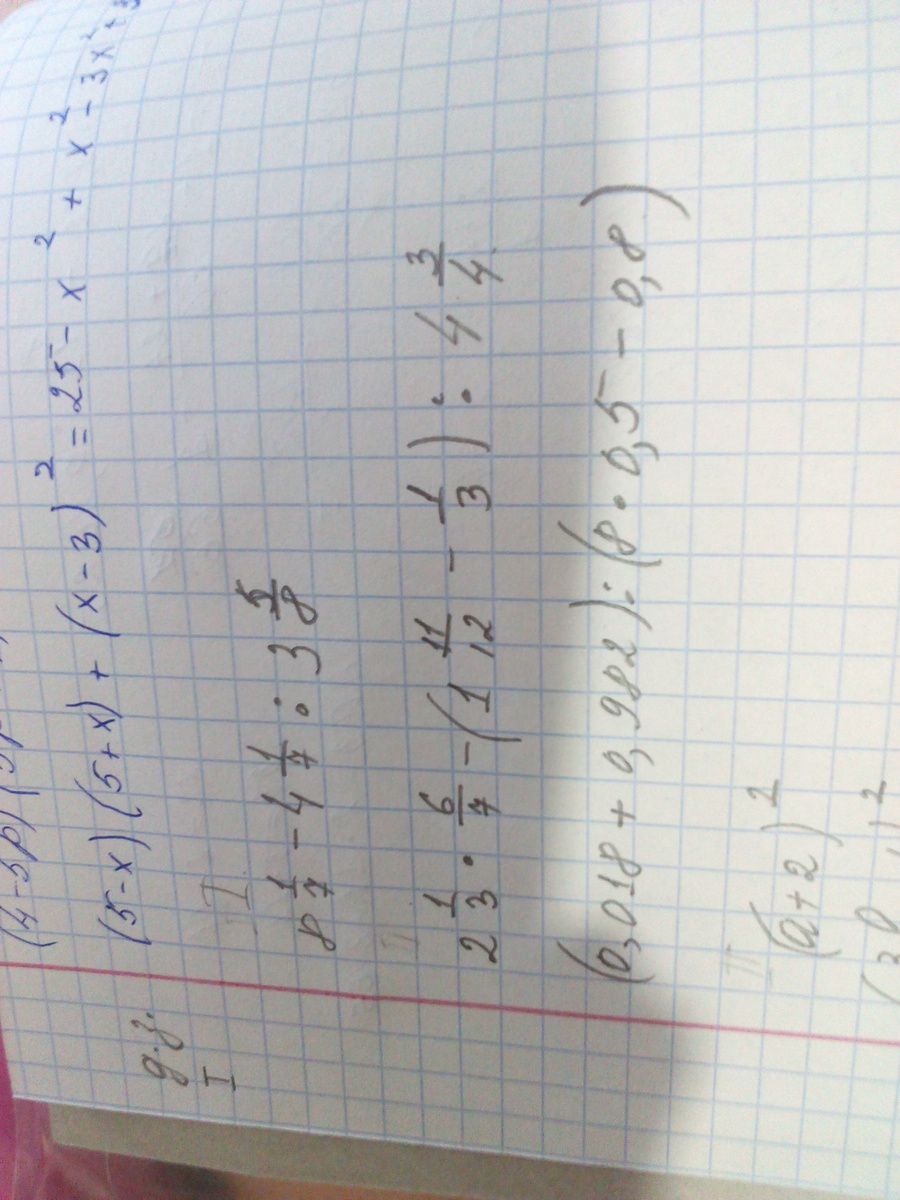 (5-x)(5+x)+(x-3)² = 25-x²+x²-3x²+
д.з.
I
I
8 1/7 - 4 1/7 : 3 5/8
II
2 1/3 · 6/7 - (1 11/12 - 1/3) : 4 3/4
(0,018 + 0,982) : (8 · 0,5 - 0,8)
II
(a+2)²